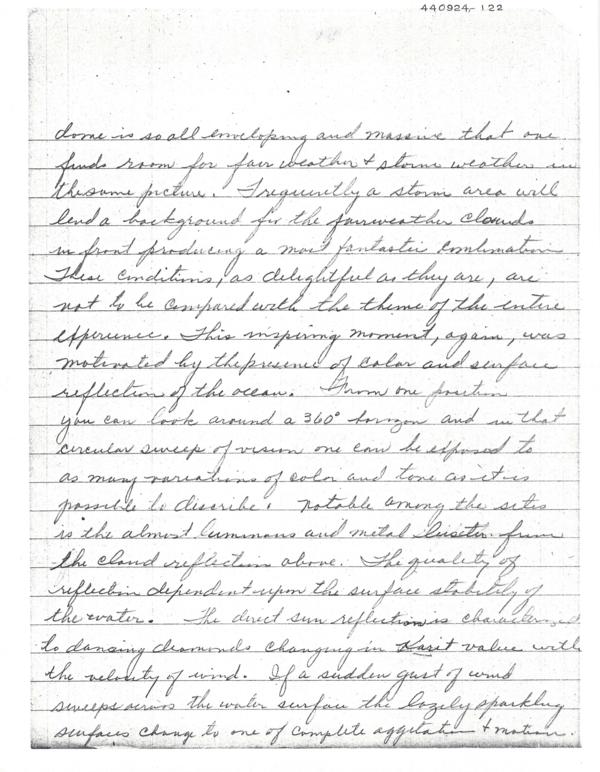 440924-122
dome is so all enveloping and massive that one
finds room for fair weather & storm weather in
the same picture. Frequently a storm area will
lend a background for the fairweather clouds
in front producing a most fantastic combination
These conditions, as delightful as they are, are
not to be compared with the theme of the entire
experience. This inspiring moment, again, was
motivated by the presence of color and surface
reflection of the ocean. From one position
you can look around a 360° horizon and in that
circular sweep of vision one can be exposed to
as many variations of color and tone as it is
possible to describe. Notable among the sites
is the almost luminous and metal luster from
the cloud reflection above. The quality of
reflection dependent upon the surface stability of
the water. The direct sun reflection is characterized
to dansing diamonds changing in Karit value with
the velocity of wind. If a sudden gust of wind
sweeps across the water surface the lazely sparkling
surfaces change to one of complete aggetation & motion.